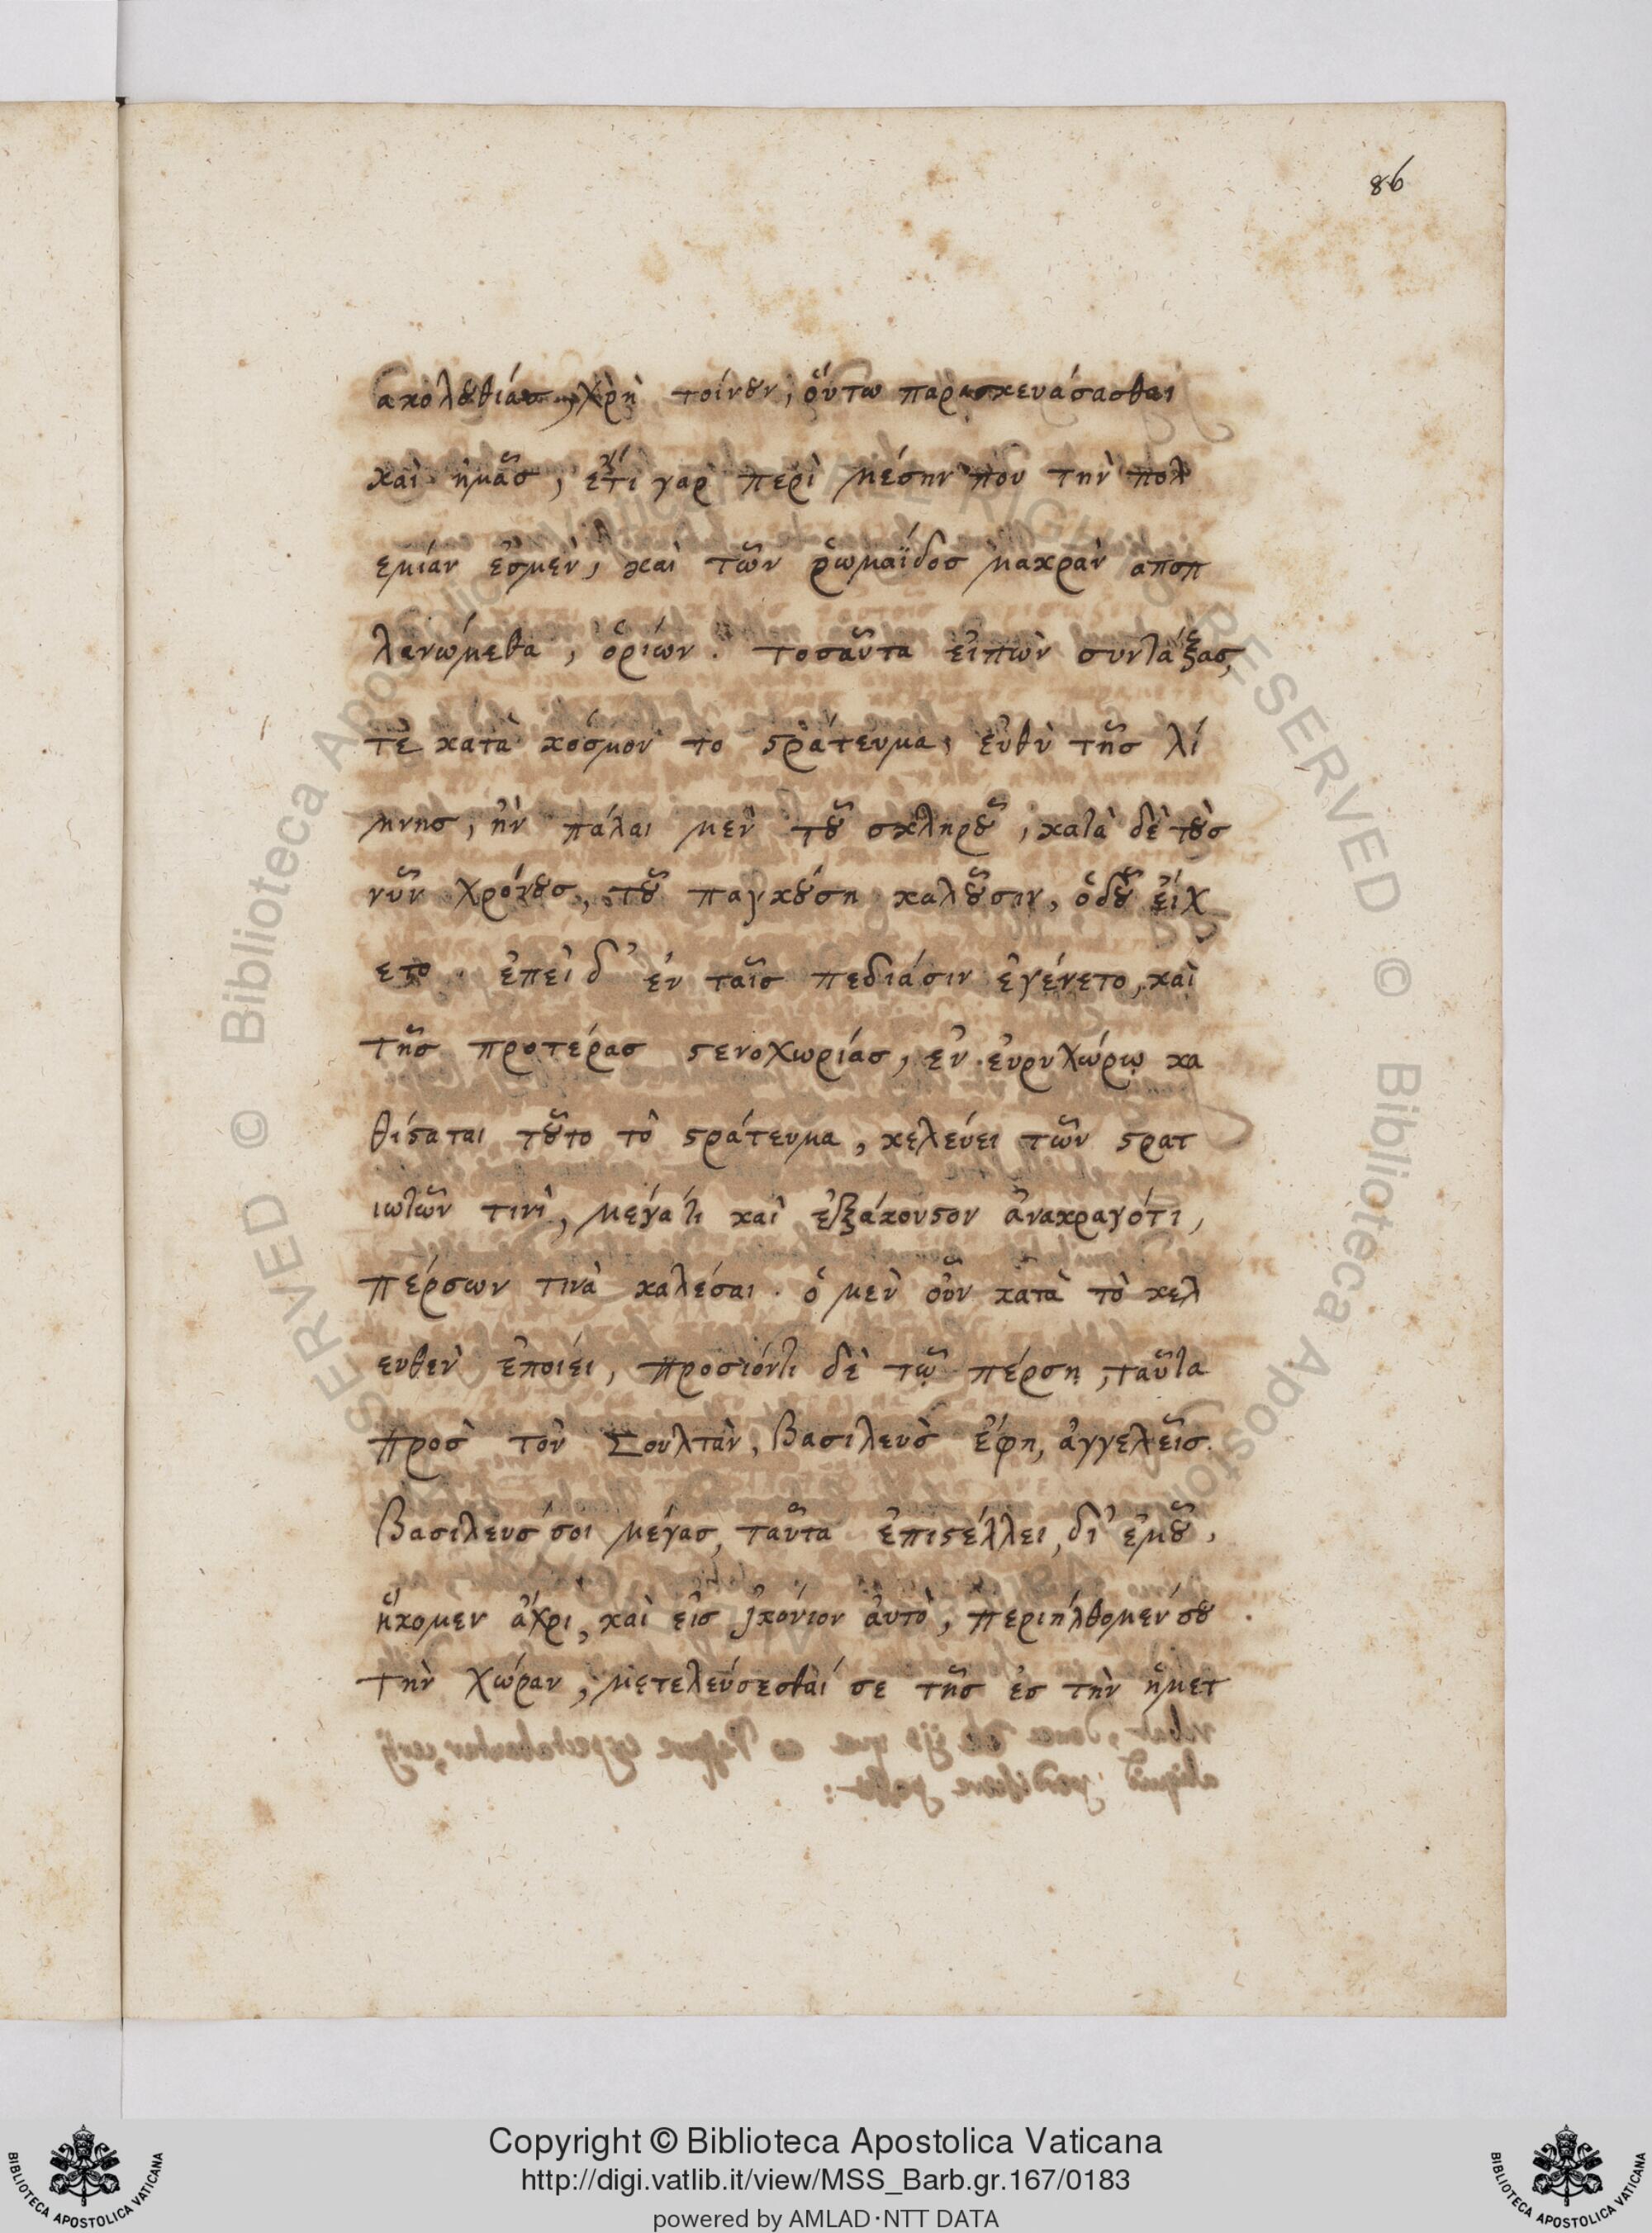 86
ακολȣθίας, χρὴ τοίνυν, ὅυτω παρασκευάσασθαι
καὶ ἡμᾶς, ἔτι γαρ περὶ μέσην που τὴν πολ
εμίαν ἐσμὲν, και τῶν ῥωμαΐδος μακρὰν αποπ
λανώμεθα, ὁρίων. τοσαῦτα εἰπὼν συντάξας
τὲ κατὰ κόσμον το ϛράτευμα, ἐυθὺ τῆς λί
μνης, ἣν πάλαι μὲν τȣ͂ σκληρȣ͂, κατὰ δὲ τȣ̀ς
νῦν χρόνȣς, τȣ͂ παγκȣ́ση καλȣ͂σιν, ὁδȣ͂ εἴχ
ετο. ἐπεὶ δ' ἐν ταῖς πεδιάσιν ἐγένετο, καὶ
τῆς προτέρας ϛενοχωρίας, ἐν ἐυρυχώρῳ κα
θίϛαται τȣ͂το τὸ ϛράτευμα, κελεύει τῶν ϛρατ
ιωτῶν τινὶ, μέγα τι καὶ ἐξάκουϛον ἀνακραγότι,
πέρσων τινὰ καλέσαι. ὁ μὲν οὖν κατὰ τὸ κελ
ευθὲν ἐποίει, προσιόντι δὲ τῷ πέρσῃ, ταῦτα
πρὸς τὸν Σουλτὰν, Βασιλεὺς ἔφη, ἀγγελεῖς.
Βασιλευς σοι μέγας, ταῦτα ἐπιϛέλλει, δι' ἐμȣ͂,
ἥκομεν ἄχρι, καὶ εἰς ἰκόνιον ἀυτὸ, περιήλθομεν σȣ.
τὴν χώραν, μετελεύσεσθαί σε τῆς ἐς τὴν ἡμετ
Copyright © Biblioteca Apostolica Vaticana
http://digi.vatlib.it/view/MSS_Barb.gr.167/0183
powered by AMLAD·NTT DATA